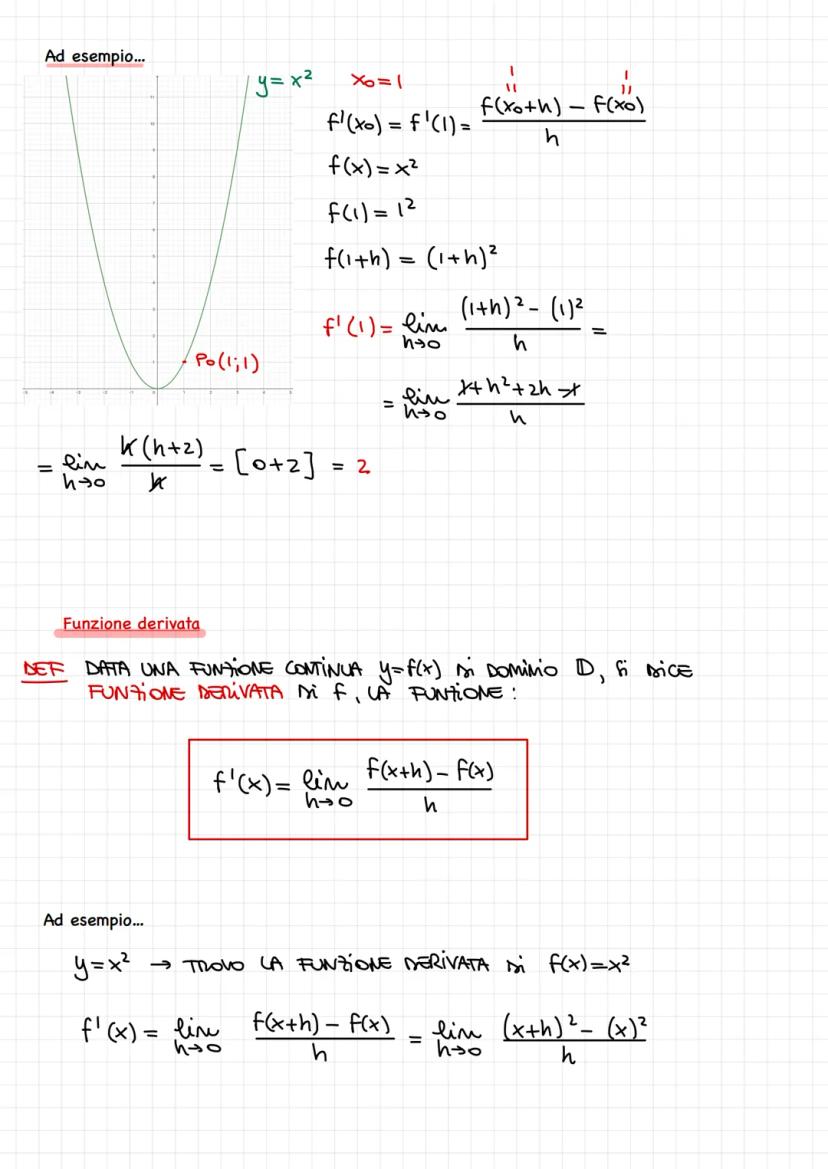 Ad esempio...
y = x²   x₀ = 1
1   1
"   "
f'(x₀) = f'(1) = f(x₀+h) − f(x₀) / h
f(x) = x²
f(1) = 1²
f(1+h) = (1+h)²
f'(1) = lim h→0 (1+h)² − (1)² / h =
P₀(1;1)
= lim h→0 1 + h² + 2h − 1 / h
= lim h→0 h(h+2) / h = [0+2] = 2
Funzione derivata
DEF DATA UNA FUNZIONE CONTINUA y=f(x) DI DOMINIO D, SI DICE
FUNZIONE DERIVATA DI f, LA FUNZIONE:
f'(x) = lim h→0 f(x+h) − f(x) / h
Ad esempio...
y = x² → TROVO LA FUNZIONE DERIVATA DI f(x) = x²
f'(x) = lim h→0 f(x+h) − f(x) / h = lim h→0 (x+h)² − (x)² / h